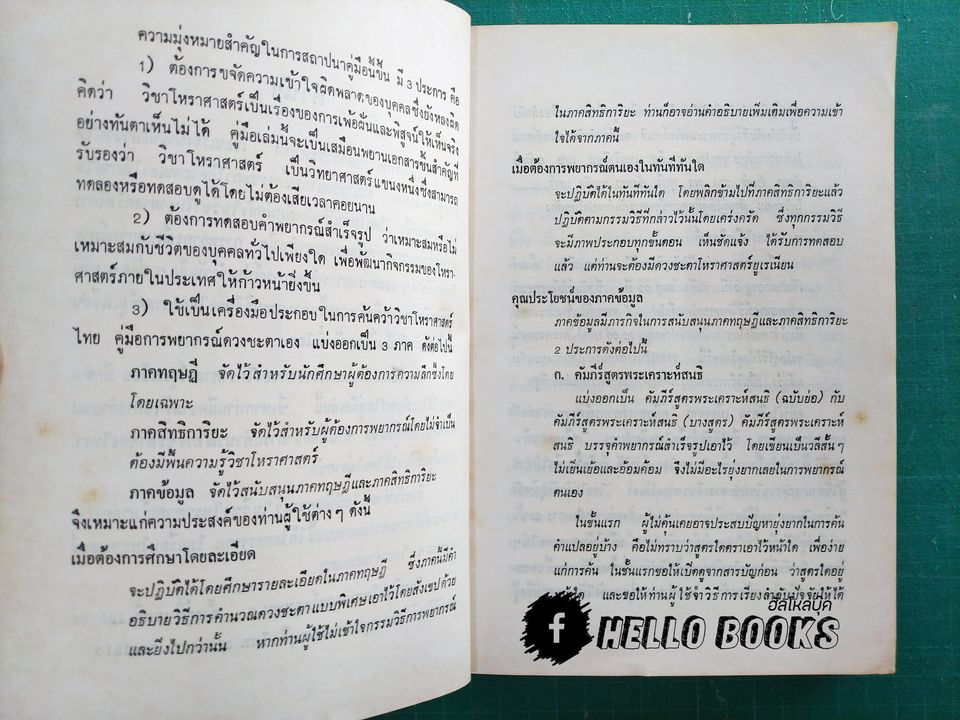 ความมุ่งหมายสำคัญในการสถาปนาคู่มือนี้ขึ้น มี 3 ประการ คือ
1) ต้องการขจัดความเข้าใจผิดพลาดของบุคคลซึ่งยังหลงผิด
คิดว่า วิชาโหราศาสตร์เป็นเรื่องของการเพ้อฝันและพิสูจน์ให้เห็นจริง
อย่างทันตาเห็นไม่ได้ คู่มือเล่มนี้จะเป็นเสมือนพยานเอกสารชิ้นสำคัญที่
รับรองว่า วิชาโหราศาสตร์ เป็นวิทยาศาสตร์แขนงหนึ่งซึ่งสามารถ
ทดลองหรือทดสอบดูได้โดยไม่ต้องเสียเวลาคอยนาน
2) ต้องการทดสอบคำพยากรณ์สำเร็จรูป ว่าเหมาะสมหรือไม่
เหมาะสมกับชีวิตของบุคคลทั่วไปเพียงใด เพื่อพัฒนากิจกรรมของโหรา-
ศาสตร์ภายในประเทศให้ก้าวหน้ายิ่งขึ้น
3) ใช้เป็นเครื่องมือประกอบในการค้นคว้าวิชาโหราศาสตร์
ไทย คู่มือการพยากรณ์ดวงชะตาเอง แบ่งออกเป็น 3 ภาค ดังต่อไปนี้
ภาคทฤษฎี จัดไว้สำหรับนักศึกษาผู้ต้องการความลึกซึ้งโดย
โดยเฉพาะ
ภาคสิทธิการิยะ จัดไว้สำหรับผู้ต้องการพยากรณ์โดยไม่จำเป็น
ต้องมีพื้นความรู้วิชาโหราศาสตร์
ภาคข้อมูล จัดไว้สนับสนุนภาคทฤษฎีและภาคสิทธิการิยะ
จึงเหมาะแก่ความประสงค์ของท่านผู้ใช้ต่าง ๆ ดังนี้
เมื่อต้องการศึกษาโดยละเอียด
จะปฏิบัติได้โดยศึกษารายละเอียดในภาคทฤษฎี ซึ่งภาคนี้มีคำ
อธิบายวิธีการคำนวณดวงชะตาแบบพิเศษเอาไว้โดยสังเขปด้วย
และยิ่งไปกว่านั้น หากท่านผู้ใช้ไม่เข้าใจกรรมวิธีการพยากรณ์
ในภาคสิทธิการิยะ ท่านก็อาจอ่านคำอธิบายเพิ่มเติมเพื่อความเข้า
ใจได้จากภาคนี้
เมื่อต้องการพยากรณ์ตนเองในทันทีทันใด
จะปฏิบัติได้ในทันทีทันใด โดยพลิกข้ามไปที่ภาคสิทธิการิยะแล้ว
ปฏิบัติตามกรรมวิธีที่กล่าวไว้นั้นโดยเคร่งครัด ซึ่งทุกกรรมวิธี
จะมีภาพประกอบทุกขั้นตอน เห็นชัดแจ้ง ได้รับการทดสอบ
แล้ว แต่ท่านจะต้องมีดวงชะตาโหราศาสตร์ยูเรเนียน
คุณประโยชน์ของภาคข้อมูล
ภาคข้อมูลมีภารกิจในการสนับสนุนภาคทฤษฎีและภาคสิทธิการิยะ
2 ประการดังต่อไปนี้
ก. คัมภีร์สูตรพระเคราะห์สนธิ
แบ่งออกเป็น คัมภีร์สูตรพระเคราะห์สนธิ (ฉบับย่อ) กับ
คัมภีร์สูตรพระเคราะห์สนธิ (บางสูตร) คัมภีร์สูตรพระเคราะห์
สนธิ บรรจุคำพยากรณ์สำเร็จรูปเอาไว้ โดยเขียนเป็นวลีสั้น ๆ
ไม่เยิ่นเย้อและอ้อมค้อม จึงไม่มีอะไรยุ่งยากเลยในการพยากรณ์
ตนเอง
ในชั้นแรก ผู้ไม่คุ้นเคยอาจประสบปัญหายุ่งยากในการค้น
คำแปลอยู่บ้าง คือไม่ทราบว่าสูตรใดตราเอาไว้หน้าใด เพื่อง่าย
แก่การค้น ในชั้นแรกขอให้เปิดดูจากสารบัญก่อน ว่าสูตรใดอยู่
ใด และขอให้ท่านผู้ใช้จำวิธีการเรียงลำดับปัจจัยให้ได้
ฮัลโหลบุ๊ค
f HELLO BOOKS